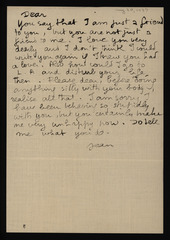 Dear
You say that I am just a friend
to you, but you are not just a
friend to me. I love you very
dearly and I don't think I could
with you again if I knew you had
a love. How could I go to
L.A and disturb your life
then. Please dear, before doing
anything silly with your body
realise all that. I am sorry I
have been behaving so stupidly
with you, but you certainly make
me very unhappy now. So tell
me what you do.
Jean